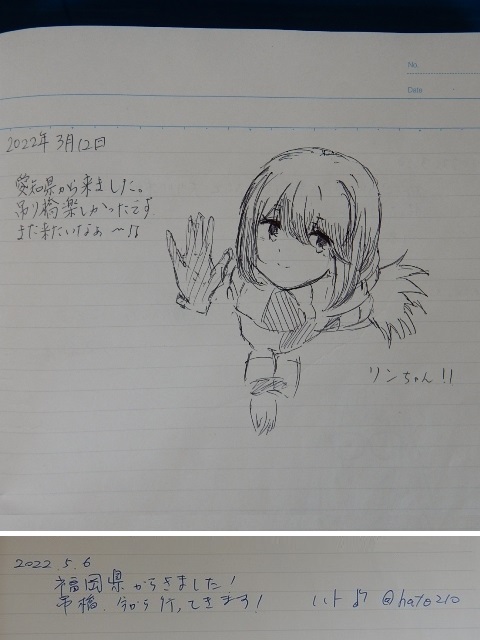 No.
Date
2022年3月12日
愛知県から来ました。
吊り橋楽しかったです
また来たいなぁ〜!!
リンちゃん!!
2022.5.6
福岡県からきました!
吊橋、今から行ってきます!
ハト より @hato210